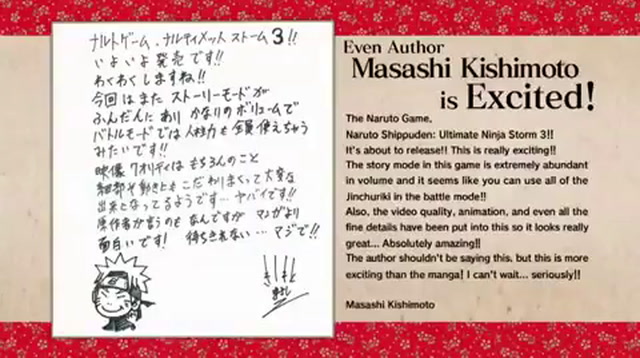 ナルトゲーム、ナルティメットストーム3!!
いよいよ発売です!!
わくわくしますね!!
今回はまたストーリーモードが
ふんだんにあり かなりのボリュームで
バトルモードでは人柱力も全員使えちゃう
みたいです!!
映像クオリティはもちろんのこと
細部や動きにもこだわりまくって大変な
出来となってるようです…ヤバイです!!
原作者が言うのもなんですが マンガより
面白いです! 待ちきれない…マジで!!
Even Author
Masashi Kishimoto
is Excited!
The Naruto Game,
Naruto Shippuden: Ultimate Ninja Storm 3!!
It's about to release!! This is really exciting!!
The story mode in this game is extremely abundant
in volume and it seems like you can use all of the
Jinchuriki in the battle mode!!
Also, the video quality, animation, and even all the
fine details have been put into this so it looks really
great... Absolutely amazing!!
The author shouldn't be saying this, but this is more
exciting than the manga! I can't wait... seriously!!
Masashi Kishimoto